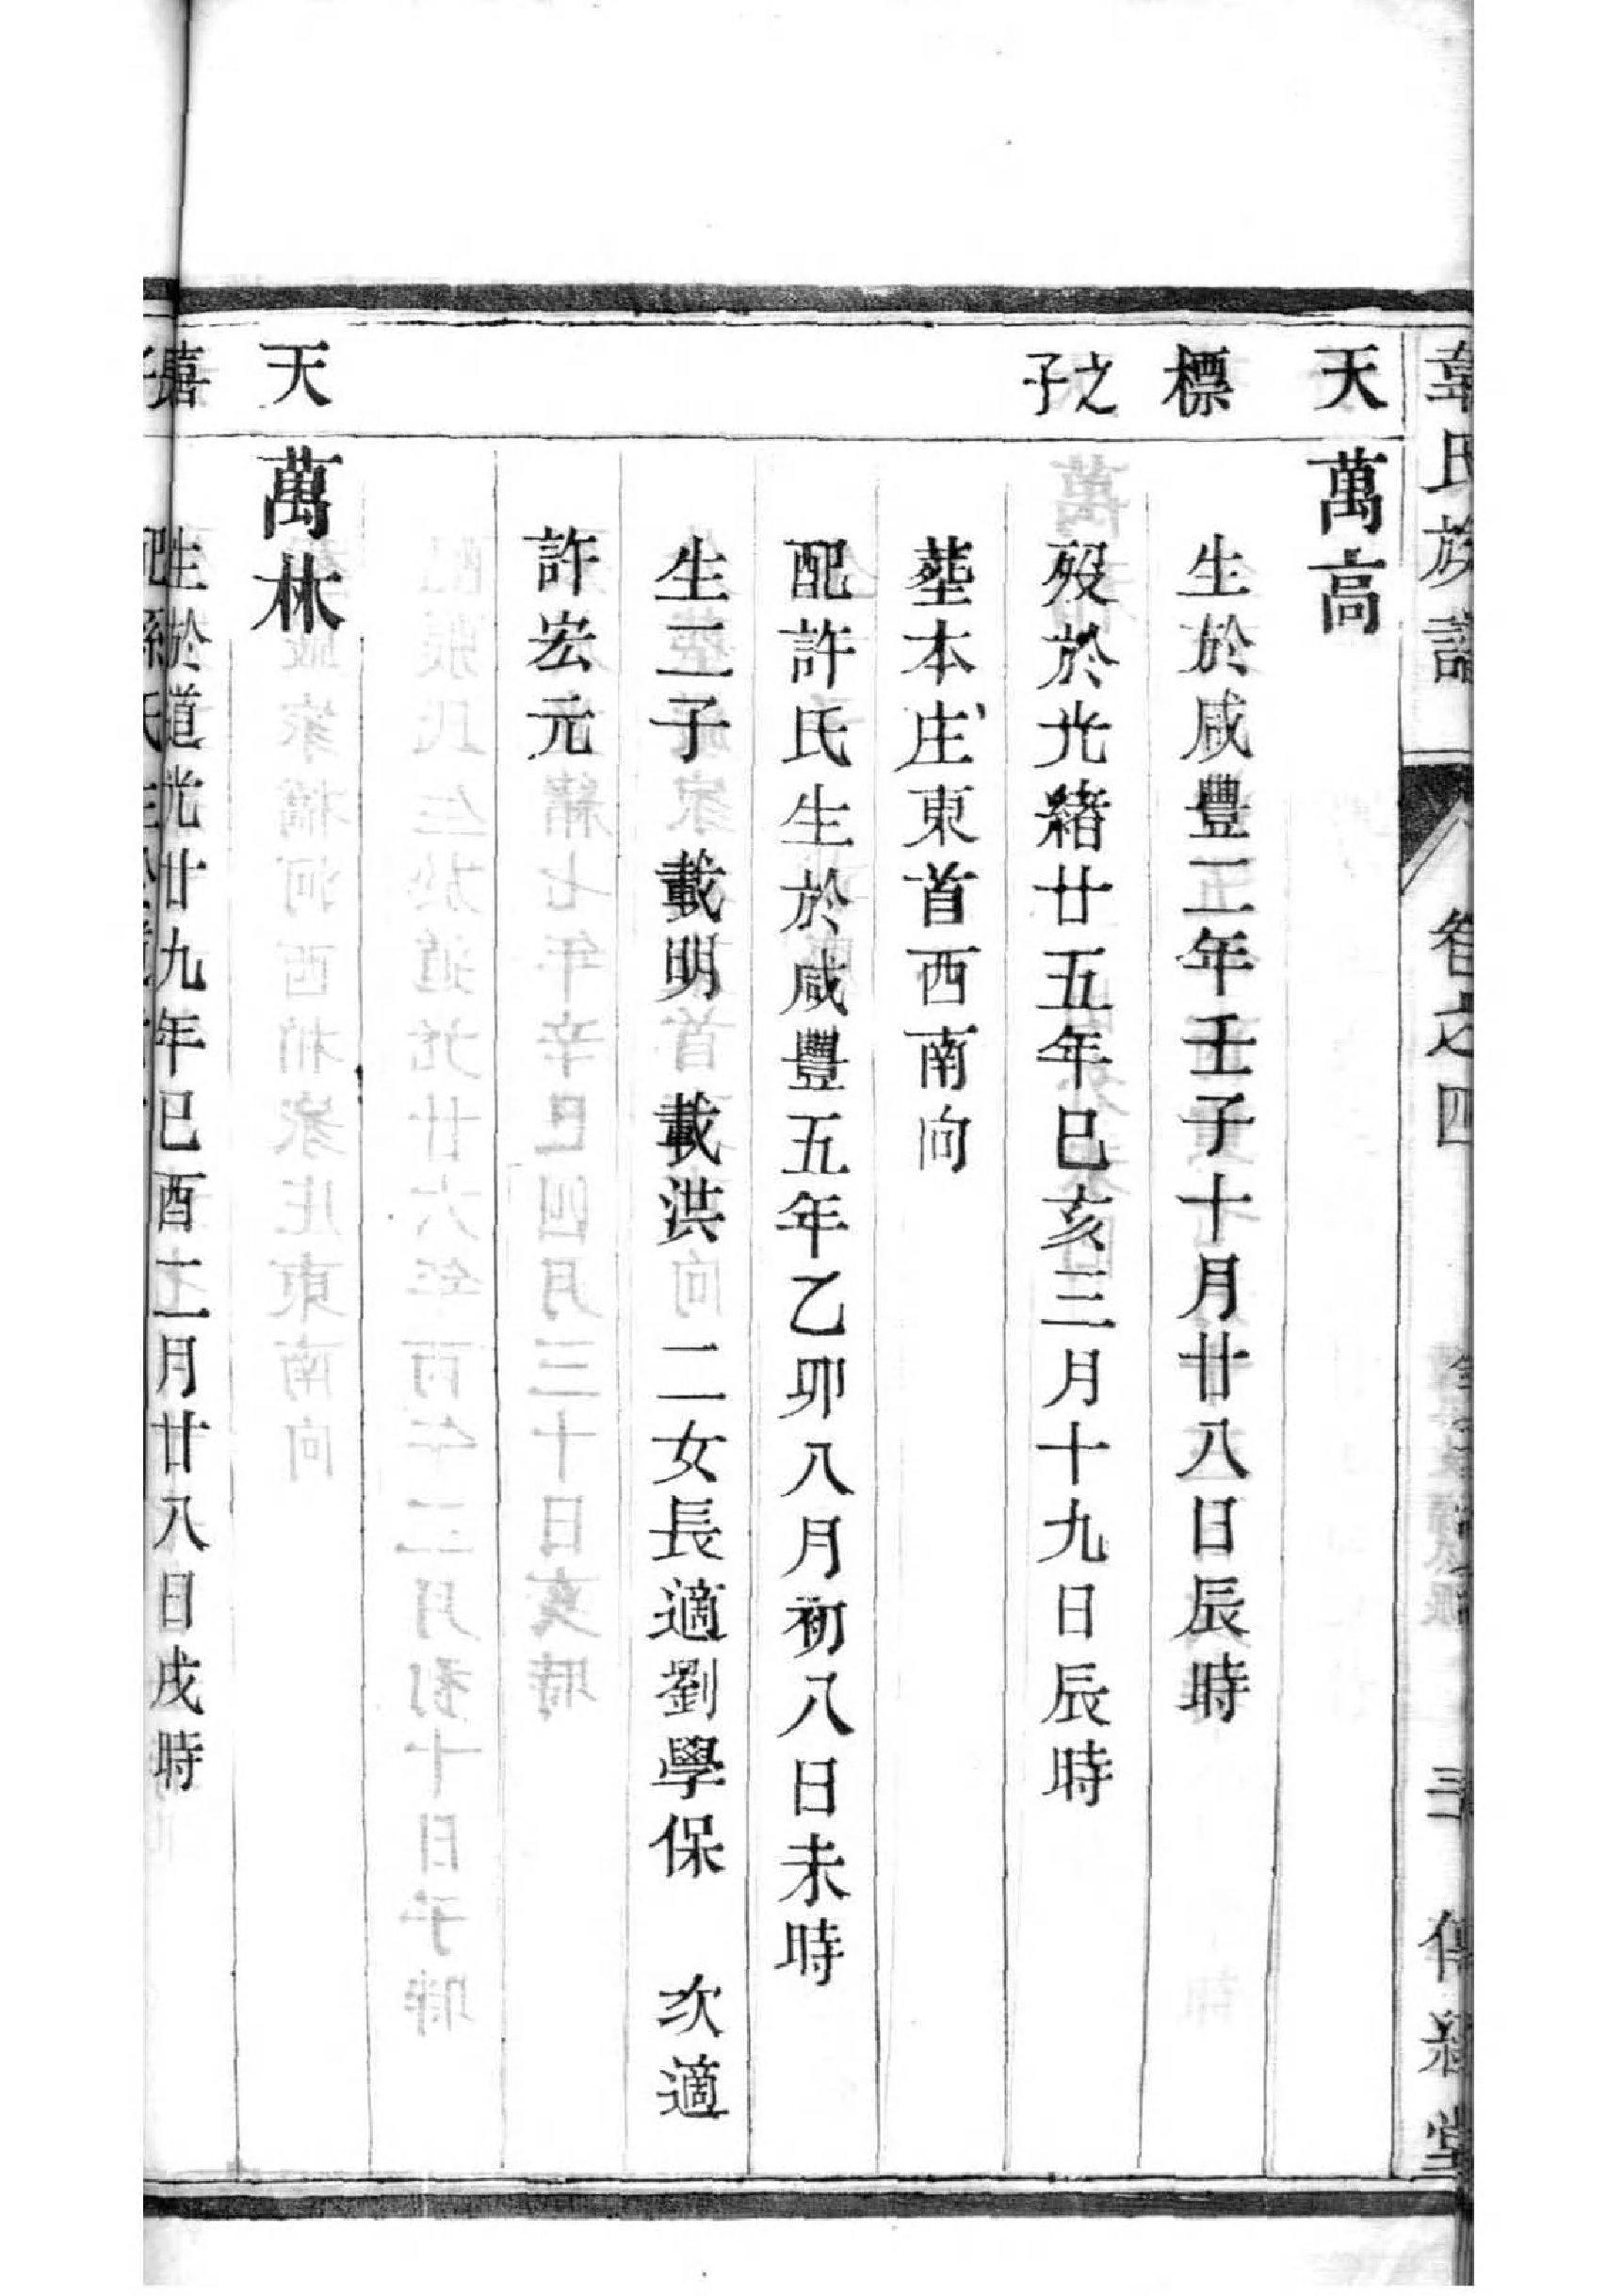 韋氏族譜 卷之四 三 傳經堂
天標之子
萬高
生於咸豐二年壬子十月廿八日辰時
歿於光緒廿五年已亥三月十九日辰時
塟本庄東首西南向
配許氏生於咸豐五年乙卯八月初八日未時
生二子 載明 載洪 二女長適劉學保 次適
許宏元
天嘉
萬林
生於道光廿九年已酉二月廿八日戌時